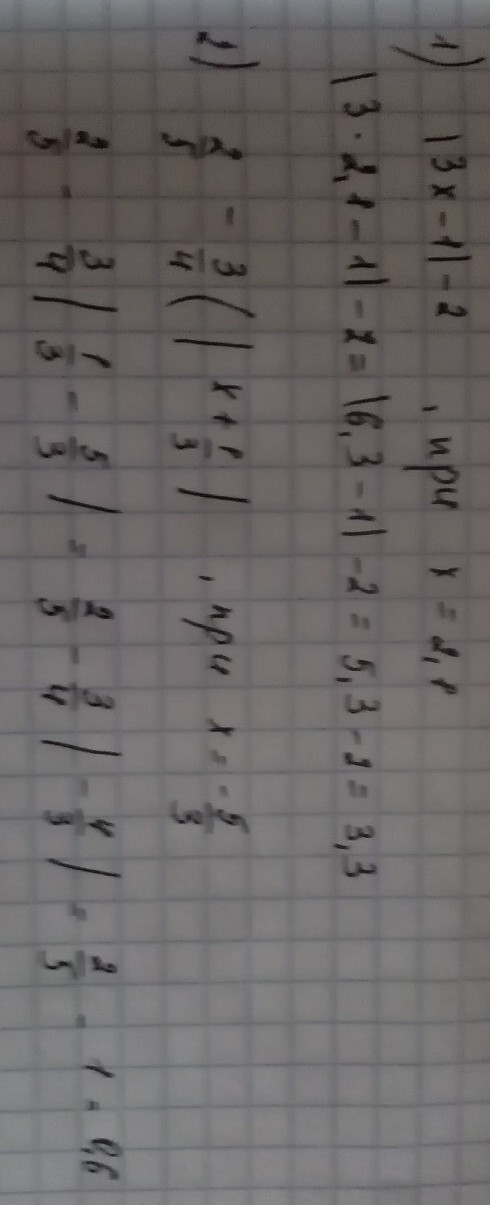 1) |3x-1|-2 , при x = 2,1
|3·2,1-1|-2 = |6,3-1|-2 = 5,3-2 = 3,3
2) 2/5 - 3/4 (|x+1/3| , при x = -5/3
2/5 - 3/4 |1/3 - 5/3| = 2/5 - 3/4 |-4/3| = 2/5 - 1 = 0,6